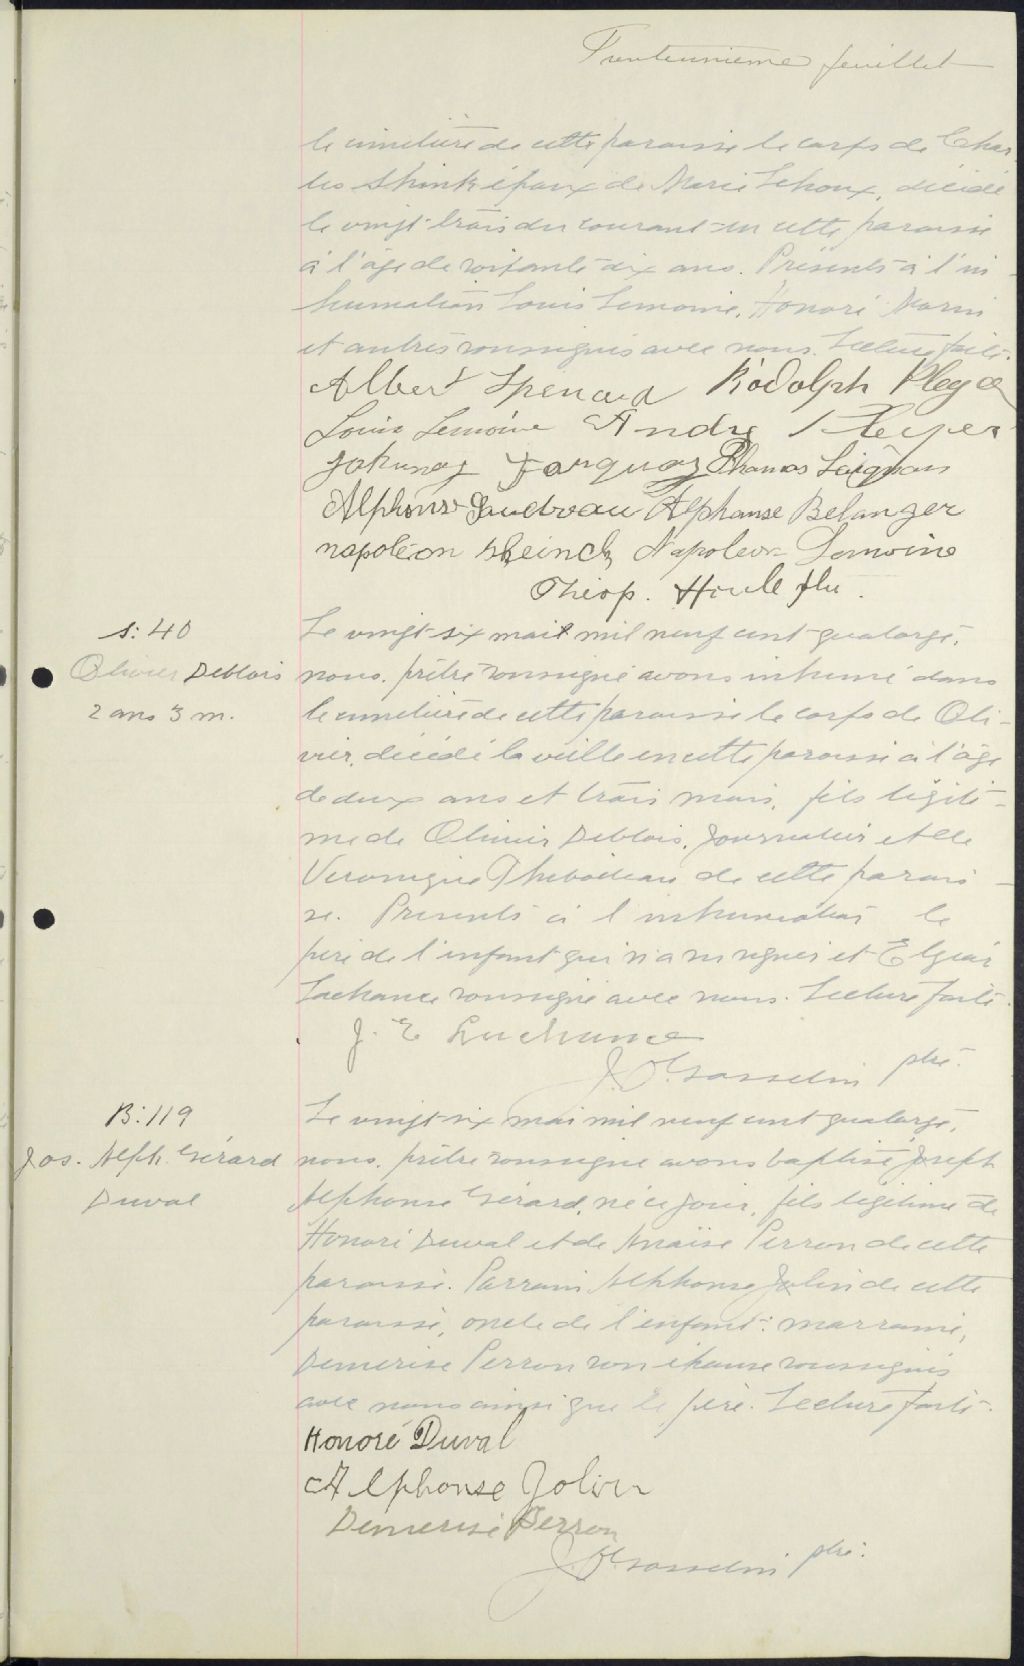 Trenteunième feuillet
le cimetière de cette paroisse le corps de Char-
les Shink époux de Marie Lehoux, décédé
le vingt-trois du courant en cette paroisse
à l'âge de soixante dix ans. Présents à l'in-
humation Louis Lemoine, Honoré Morin
et autres soussignés avec nous. Lecture faite.
Albert Spenard Rodolph
Louis Lemoine André
Thomas
Alphonse Alphonse Belanger
napoléon sheinck Napoleon Lemoine
Théop. Houle ptre.
S: 40
Olivier Deblois
2 ans 3 m.
Le vingt-six mai mil neuf cent quatorze,
nous, prêtre soussigné avons inhumé dans
le cimetière de cette paroisse le corps de Oli-
vier, décédé la veille en cette paroisse à l'âge
de deux ans et trois mois, fils légiti-
me de Olivier Deblois, journalier et de
Veronique Thibodeau de cette parois-
se. Présents à l'inhumation le
père de l'enfant qui n'a su signer et Elzéar
Lachance soussigné avec nous. Lecture faite.
J. E Lachance
J. O. Gosselin ptre.
B: 119
Jos. Alph. Gérard
Duval
Le vingt-six mai mil neuf cent quatorze,
nous, prêtre soussigné avons baptisé Joseph
Alphonse Gérard, né ce jour, fils légitime de
Honoré Duval et de Anaïse Perron de cette
paroisse. Parrain Alphonse Jolin de cette
paroisse, oncle de l'enfant: marraine,
Demerise Perron son épouse soussignés
avec nous ainsi que le père. Lecture faite.
Honoré Duval
Alphonse Jolin
Demerise Perron
J. O. Gosselin ptre.